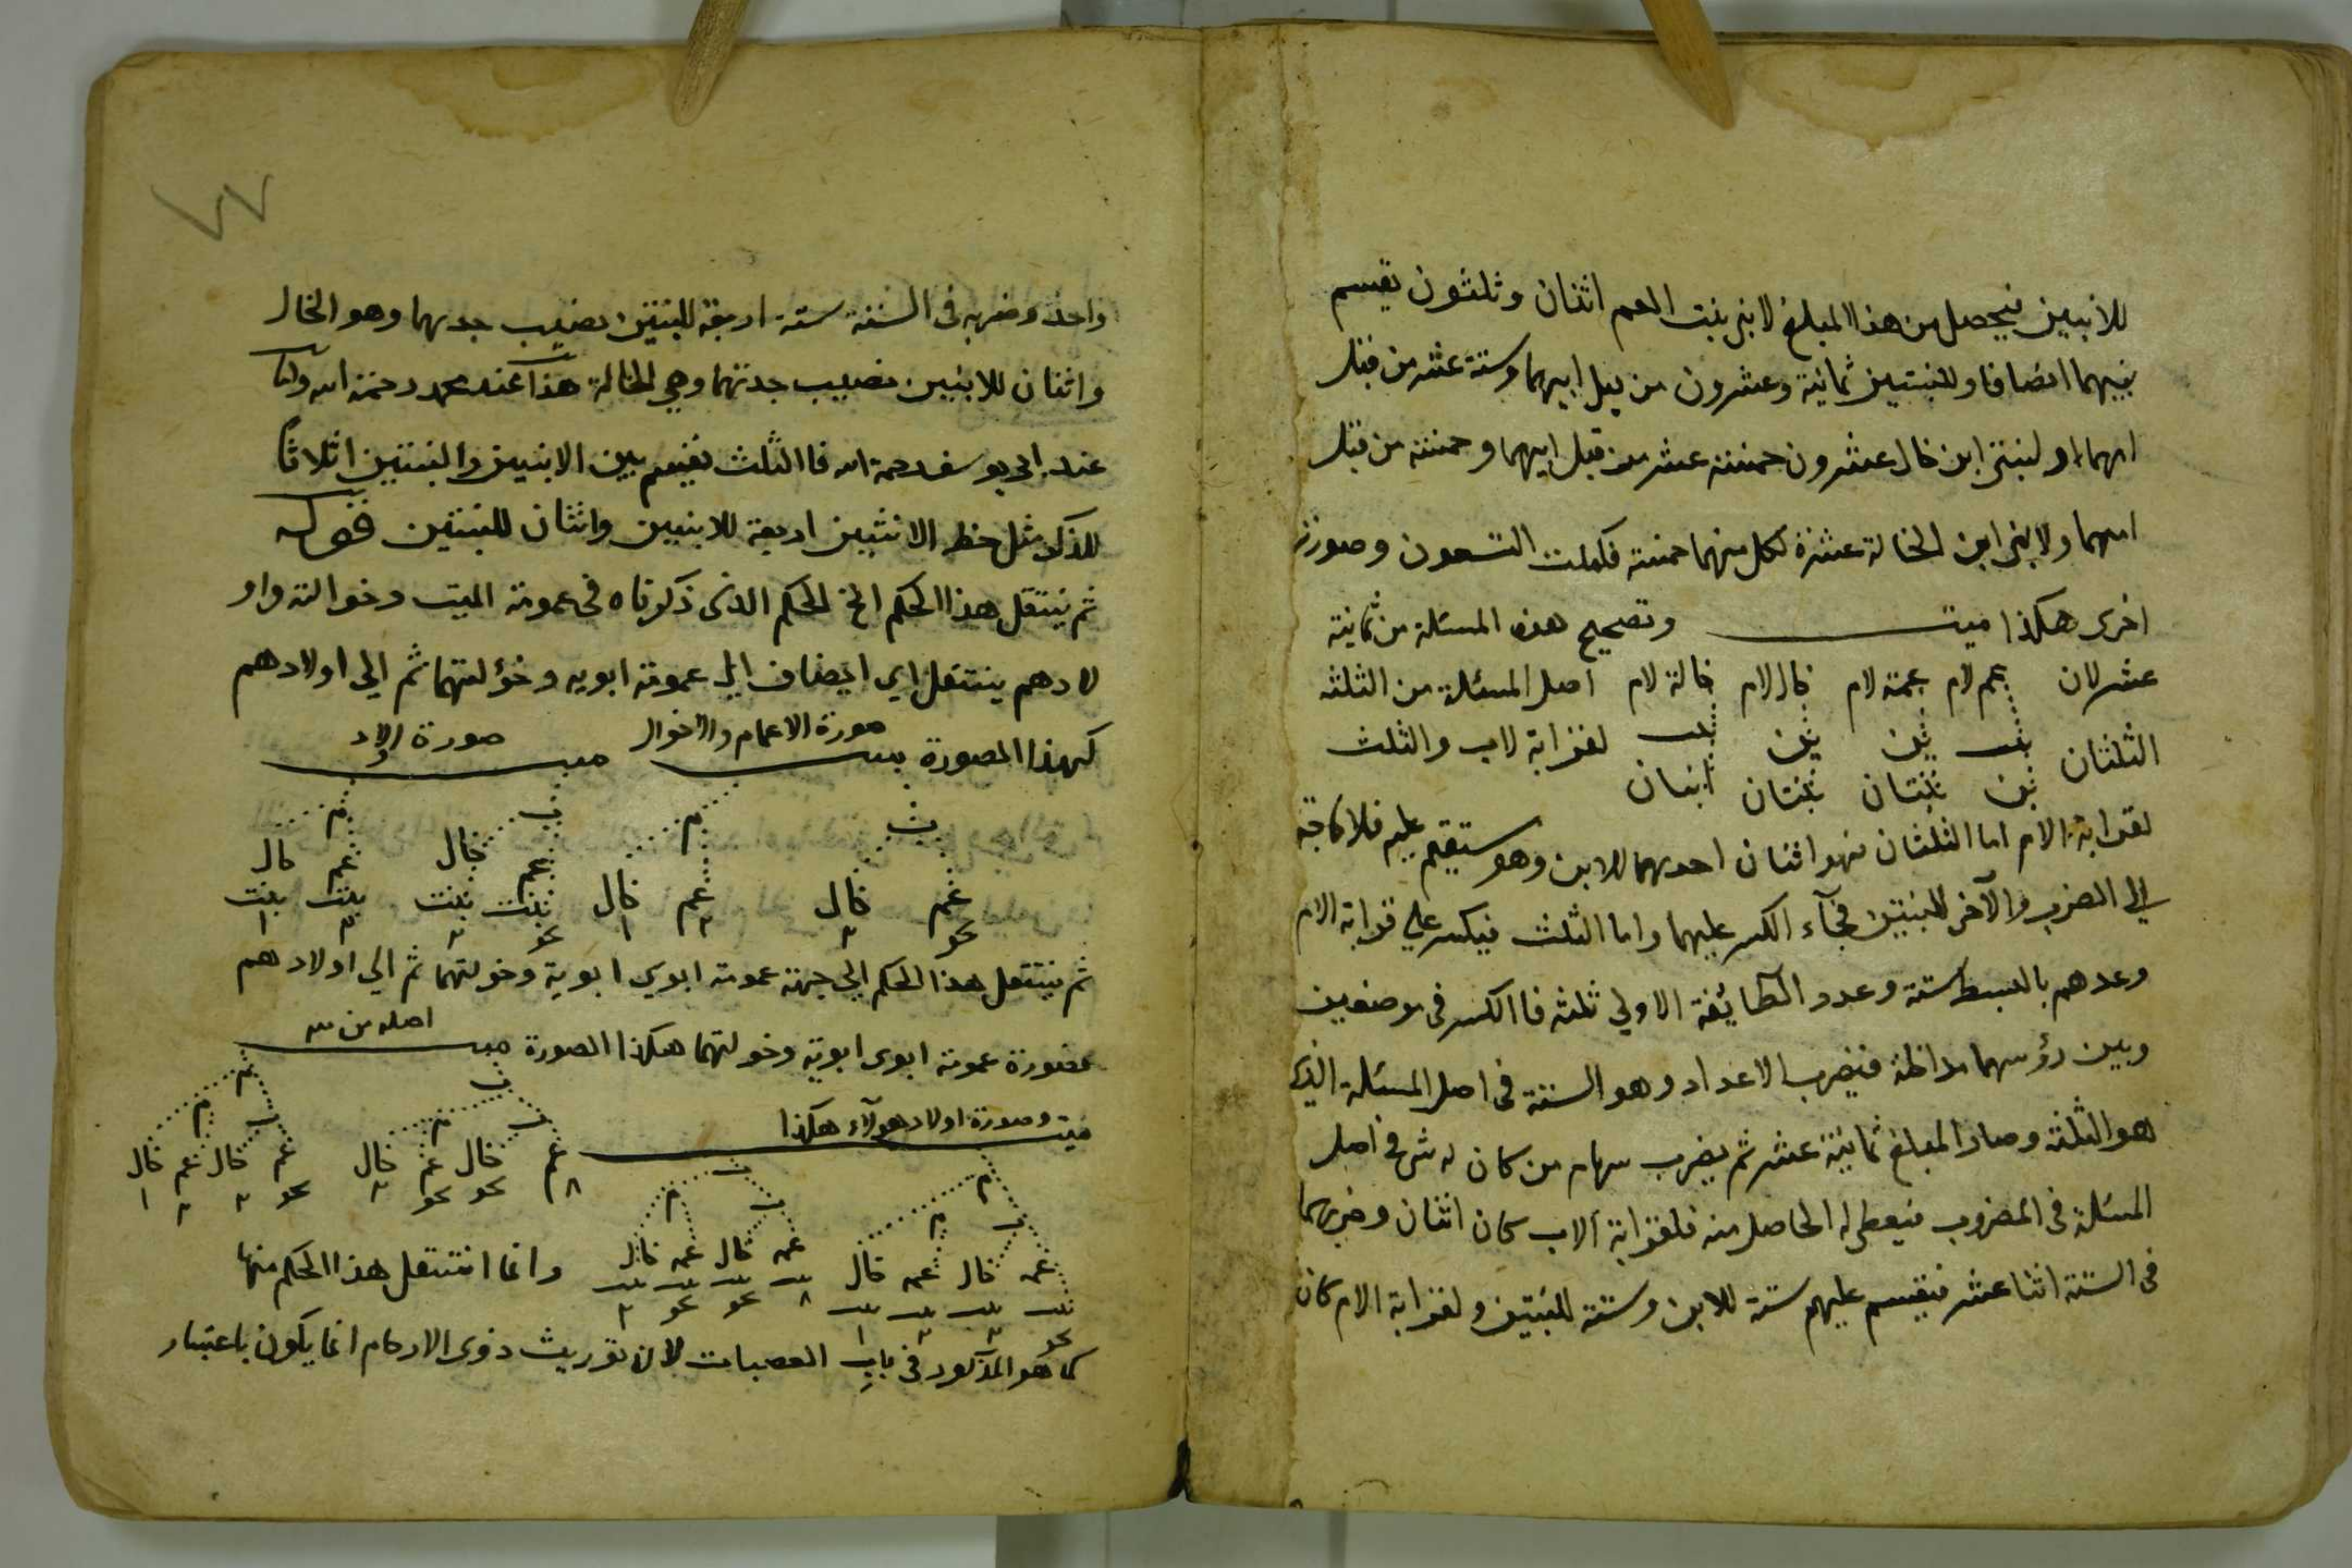 للابنين فيحصل من هذا المبلغ لابنى بنت العم اثنان وثلثون يقسم
بينهما انصافا وللبنتين ثمانية وعشرون من قبل ابيهما وستة عشر من قبل
امهما ولبنتى ابن خال عشرون خمسة عشر من قبل ابيهما وخمسة من قبل
امهما ولابنى ابن الخالة عشرة لكل منهما خمسة فكملت التسعون وصورة
اخرى هكذا ميت وتصحيح هذه المسئلة من ثمانية
عشر لان عم لام عمة لام خال لام خالة لام اصل المسئلة من الثلثه
الثلثان بنت بن بن بنت لقرابة لاب والثلث
بن بنتان بنتان ابنان
لقرابة الام اما الثلثان فهو اثنان احدهما للابن وهو يستقيم عليه فلا حاجة
الى الضرب والآخر للبنتين فجآء الكسر عليهما واما الثلث فيكسر على قرابة الام
وعدهم بالبسط ستة وعدد الطائفة الاولي ثلثه فاالكسر فى موضعين
وبين رؤسهما مداخلة فيضرب الاعداد وهو الستة فى اصل المسئلة الذى
هو الثلثة وصار المبلغ ثمانية عشر ثم يضرب سهام من كان له شئ فى اصل
المسئلة فى المضروب فيعطى له الحاصل منه فلقرابة الاب كان اثنان وضربهما
فى الستة اثنا عشر فيقسم عليهم ستة للابن وستة للبنتين ولقرابة الام كان
واحد وضربه فى الستة ستة اربعة للبنتين نصيب جدهما وهو الخال
واثنان للابنين نصيب جدتهما وهى الخالة هذا عند محمد رحمة الله واما
عند ابى يوسف رحمة الله فاالثلث يقسم بين الابنين والبنتين اثلاثا
للذكر مثل حظ الانثيين اربعة للابنين واثنان للبنتين قوله
ثم ينتقل هذا الحكم الخ الحكم الذى ذكرناه فى عمومة الميت وخوالته واو
لادهم ينتقل اى ايضاف الى عمومة ابويه وخؤلتهما ثم الى اولادهم
كهذا الصورة ميت صورة الاعمام والاخوال ميت صورة اولاد
ب م ب م
عم خال عم خال عم خال عم خال
بنت بنت بنت بنت
ثم ينتقل هذا الحكم الى جهة عمومة ابوى ابوية وخولتهما ثم الى اولادهم
فصورة عمومة ابوى ابوية وخولتهما هكذا الصورة ميت اصله من
ميت وصورة اولاد هولآء هكذا
عم خال عم خال عم خال عم خال
عم خال عم خال عم خال عم خال وانما انتقل هذا الحكم منها
كما هو المذكور فى باب العصبات لان توريث ذوى الارحام انما يكون باعتبار